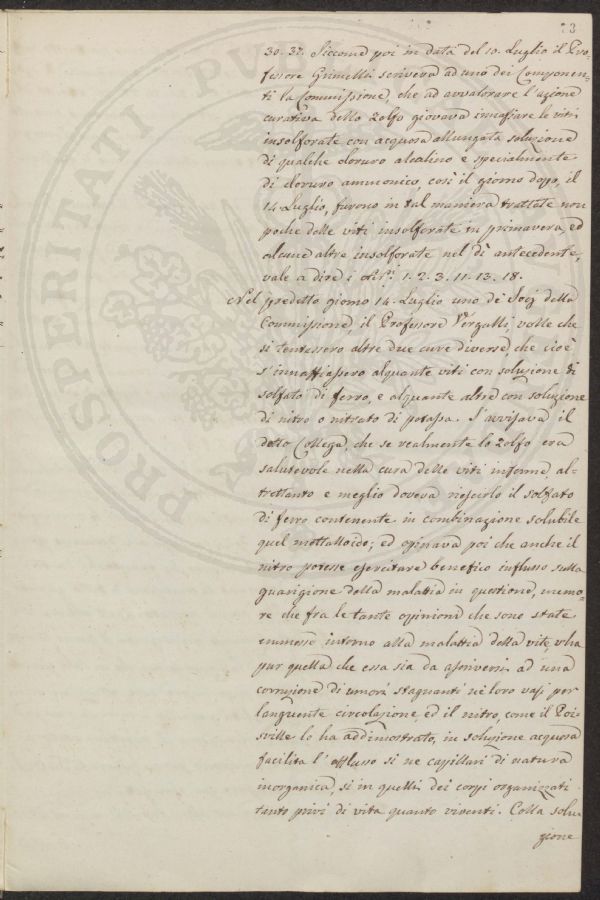 73
30. 32. Siccome poi in data del 10. Luglio il Pro-
fessore Grimelli scriveva ad uno dei Componen-
ti la Commissione, che ad avvalorare l'azione
curativa dello Zolfo giovava innaffiare le viti
insolforate con acquosa allungata soluzione
di qualche cloruro alcalino e specialmente
di cloruro ammonico, così il giorno dopo, il
14 Luglio, furono in tal maniera trattate non
poche delle viti insolforate in primavera, ed
alcune altre insolforate nel dì antecedente,
vale a dire i Nri. 1. 2. 3. 11. 13. 18.
Nel predetto giorno 14. Luglio uno de' Socj della
Commissione, il Professore Vergalli, volle che
si tentassero altre due cure diverse, che cioè
s'innaffiassero alquante viti con soluzione di
solfato di ferro, e alquante altre con soluzione
di nitro o nitrato di potassa. S'avvisava il
detto Collega, che se realmente lo Zolfo era
salutevole nella cura delle viti inferme al-
trettanto e meglio doveva riescirlo il solfato
di ferro contenente in combinazione solubile
quel mettalloide; ed opinava poi che anche il
nitro potesse esercitare benefico influsso sulla
guarigione della malattia in questione, memo-
re che fra le tante opinioni che sono state
emmesse intorno alla malattia della vite, v'ha
pur quella che essa sia da ascriversi ad una
corruzione di umori stagnanti ne' loro vasi per
languente circolazione, ed il nitro, come il Poi-
sville lo ha addimostrato, in soluzione acquosa
facilita l'afflusso sì ne capillari di natura
inorganica, sì in quelli dei corpi organizzati
tanto privi di vita quanto viventi. Colla solu-
zione
PROSPERITATI PUB